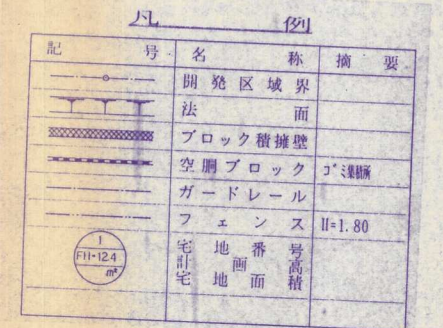 凡例
記号 名称 摘要
開発区域界
法面
ブロック積擁壁
空胴ブロック ゴミ集積所
ガードレール
フェンス H=1.80
1 宅地番号
FH=12.4 計画高
m² 宅地面積